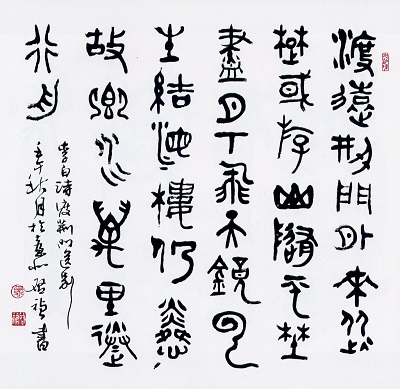 渡遠荊門外來從
楚或斿山隨平野
盡月下飛天鏡云
生結海樓仍憐
故鄉水萬里送
行舟
李白詩渡荊門送別
秋月於書